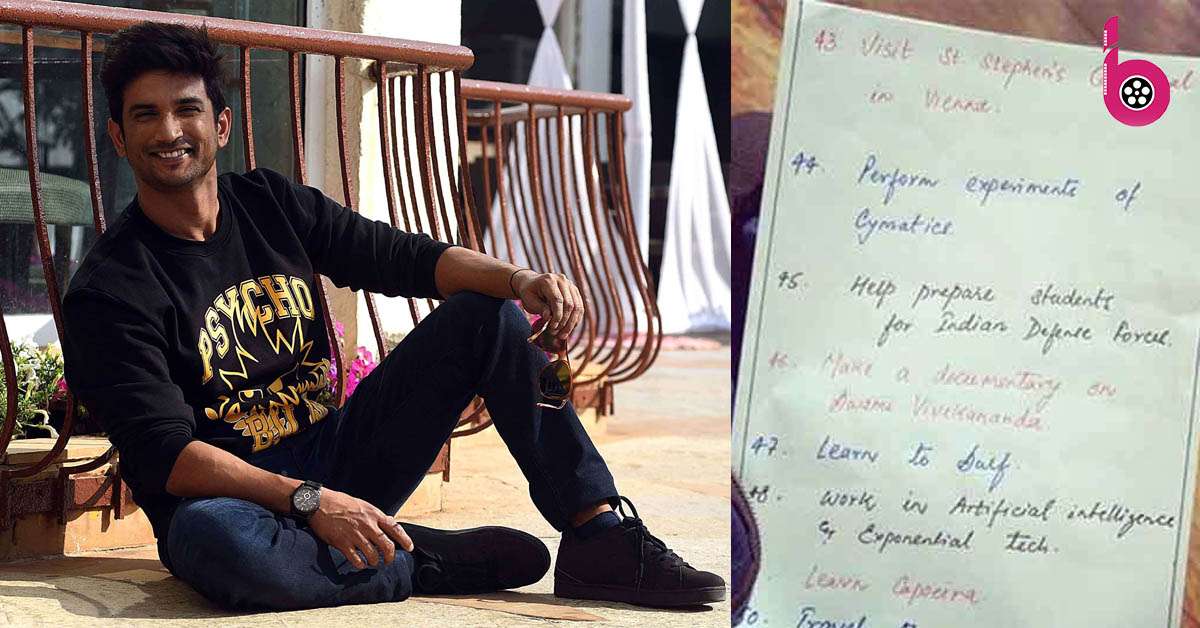 PSYCHO
43 Visit St Stephen's
in Vienna.
44. Perform experiments of
Cymatics
45. Help prepare students
for Indian Defense Forces.
46. Make a documentary on
Swami Vivekananda
47. Learn to Surf.
48. Work in Artificial intelligence
& Exponential tech.
Learn Capoeira
50. Travel